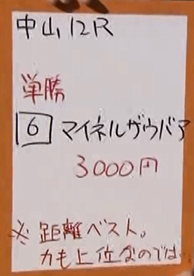 中山12R
単勝
6 マイネルザウバア
3000円
※距離ベスト。
力も上位なのでは。